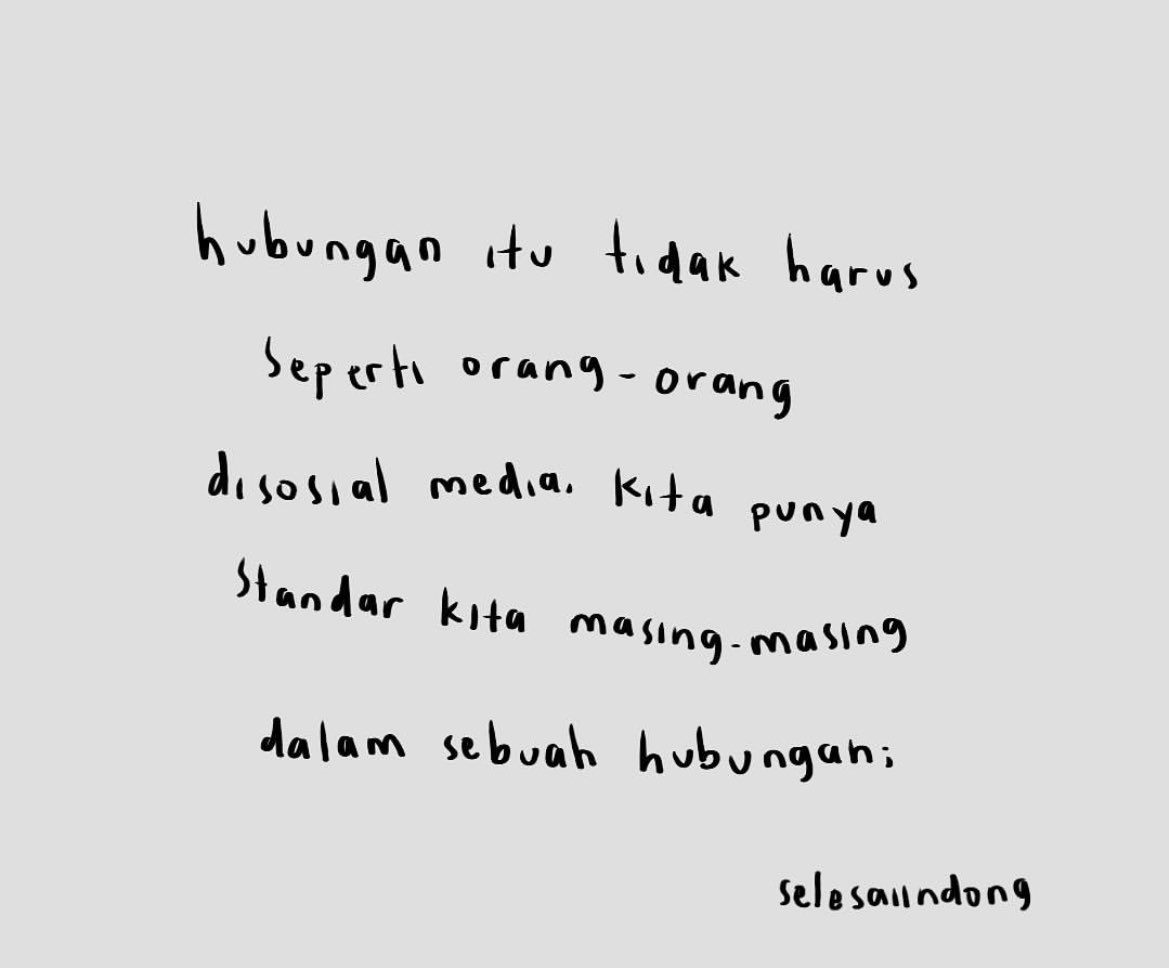 hubungan itu tidak harus
seperti orang-orang
disosial media. kita punya
standar kita masing-masing
dalam sebuah hubungan;
selesaiindong